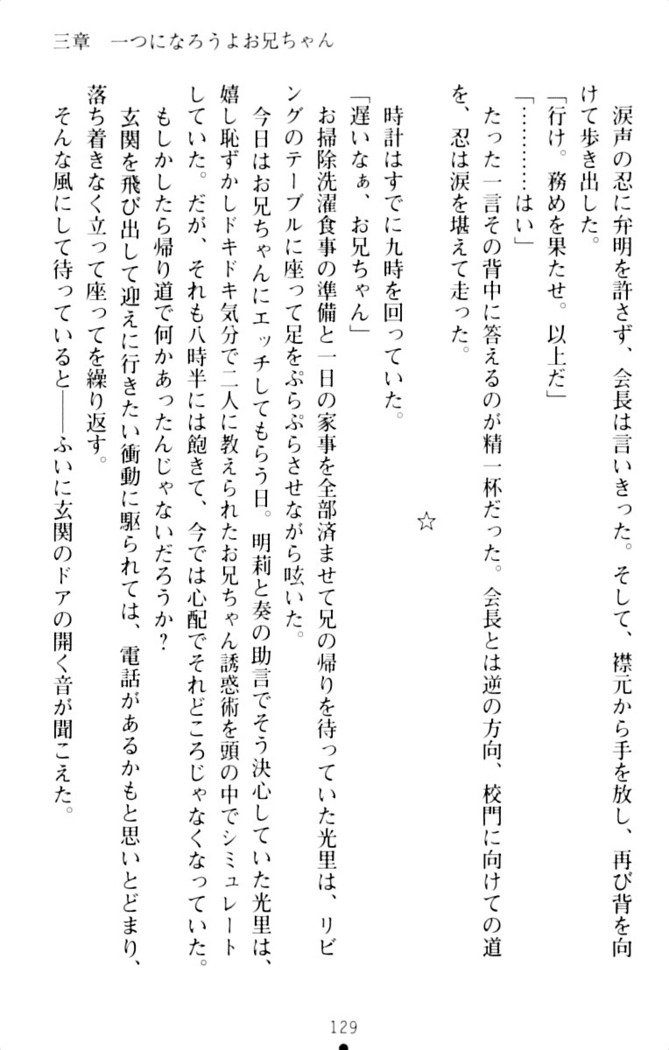 三章　一つになろうよお兄ちゃん
涙声の忍に弁明を許さず、会長は言いきった。そして、襟元から手を放し、再び背を向
けて歩き出した。
「行け。務めを果たせ。以上だ」
「…………はい」
たった一言その背中に答えるのが精一杯だった。会長とは逆の方向、校門に向けての道
を、忍は涙を堪えて走った。
☆
時計はすでに九時を回っていた。
「遅いなぁ、お兄ちゃん」
お掃除洗濯食事の準備と一日の家事を全部済ませて兄の帰りを待っていた光里は、リビ
ングのテーブルに座って足をぷらぷらさせながら呟いた。
今日はお兄ちゃんにエッチしてもらう日。明莉と奏の助言でそう決心していた光里は、
嬉し恥ずかしドキドキ気分で二人に教えられたお兄ちゃん誘惑術を頭の中でシミュレート
していた。だが、それも八時半には飽きて、今では心配でそれどころじゃなくなっていた。
もしかしたら帰り道で何かあったんじゃないだろうか？
玄関を飛び出して迎えに行きたい衝動に駆られては、電話があるかもと思いとどまり、
落ち着きなく立って座ってを繰り返す。
そんな風にして待っていると――ふいに玄関のドアの開く音が聞こえた。
129